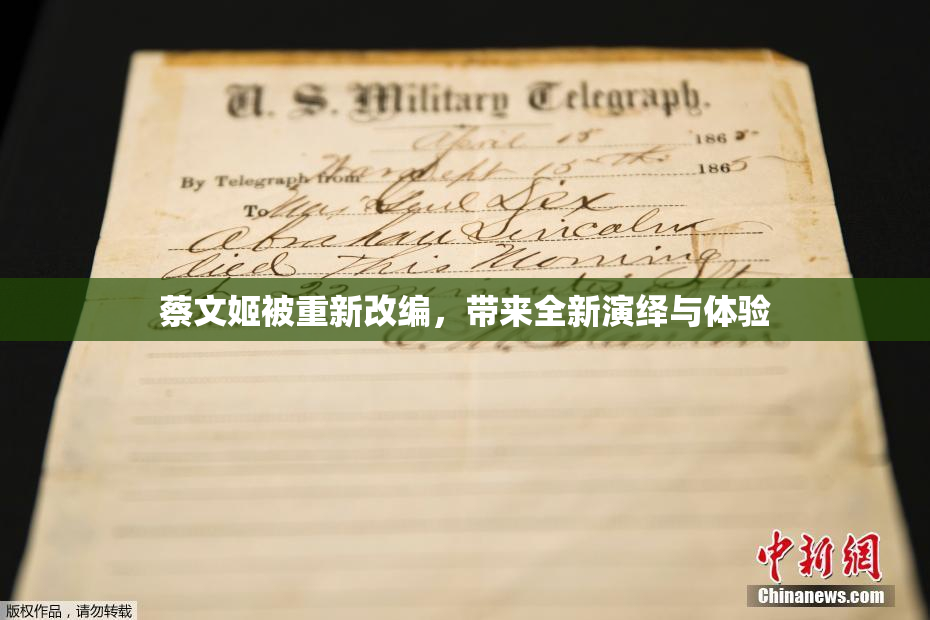 U. S. Military Telegraph.
April 15 1865
By Telegraph from War Dept 15th 1865
To Maj Genl Dix
Abraham Lincoln
died This Morning
at 22 minutes after
蔡文姬被重新改编，带来全新演绎与体验
E. M. Stanton
中新网
Chinanews.com
版权作品，请勿转载